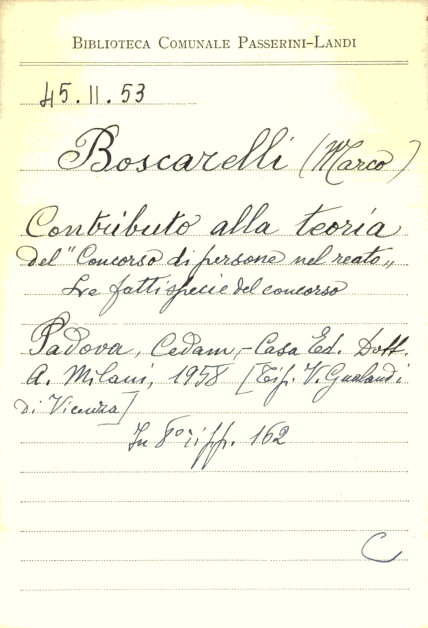 BIBLIOTECA COMUNALE PASSERINI-LANDI
45.11.53
Boscarelli (Marco)
Contributo alla teoria
del "Concorso di persone nel reato„
Le fattispecie del concorso
Padova, Cedam,- Casa Ed. Dott.
A. Milani, 1958 [Tip. V. Gualandi
di Vicenza]
In 8° pp. 162
C